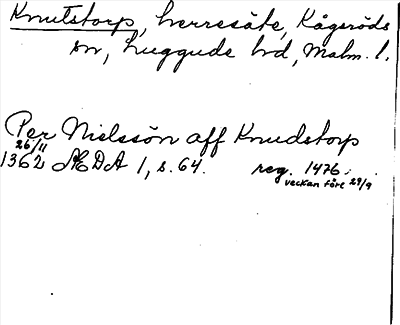 Knutstorp, herresäte, Kågeröds
sn, Luggude hd, Malm. l.
Per Nielssön aff Knudstorp
26/11
1362 ÆDA 1, s. 64. reg. 1476
veckan före 29/9